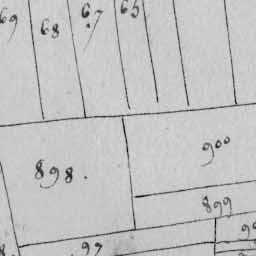 69 68 67 65
900
898.
899